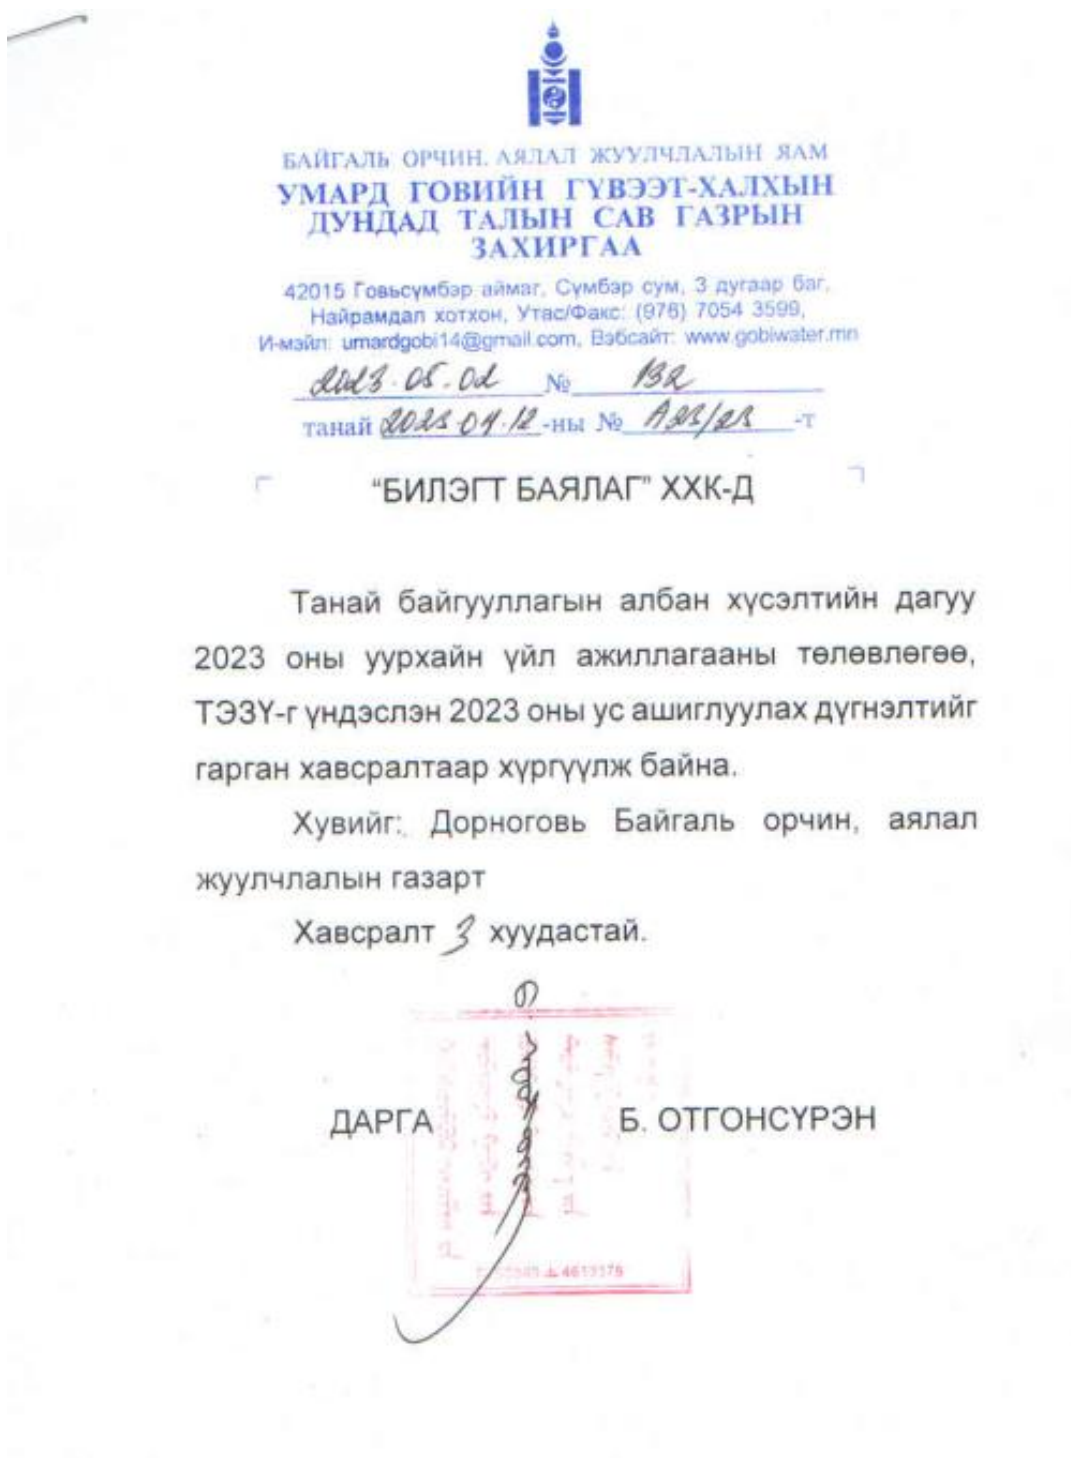 БАЙГАЛЬ ОРЧИН, АЯЛАЛ ЖУУЛЧЛАЛЫН ЯАМ
УМАРД ГОВИЙН ГҮВЭЭТ-ХАЛХЫН
ДУНДАД ТАЛЫН САВ ГАЗРЫН
ЗАХИРГАА
42015 Говьсүмбэр аймаг, Сүмбэр сум, 3 дугаар баг,
Найрамдал хотхон, Утас/Факс: (976) 7054 3599,
И-мэйл: umardgobi14@gmail.com, Вэбсайт: www.gobiwater.mn
2023.05.02 № 132
танай 2023.04.12-ны № А23/23 -т
“БИЛЭГТ БАЯЛАГ” ХХК-Д
Танай байгууллагын албан хүсэлтийн дагуу
2023 оны уурхайн үйл ажиллагааны төлөвлөгөө,
ТЭЗҮ-г үндэслэн 2023 оны ус ашиглуулах дүгнэлтийг
гарган хавсралтаар хүргүүлж байна.
Хувийг: Дорноговь Байгаль орчин, аялал
жуулчлалын газарт
Хавсралт 3 хуудастай.
ДАРГА Б. ОТГОНСҮРЭН